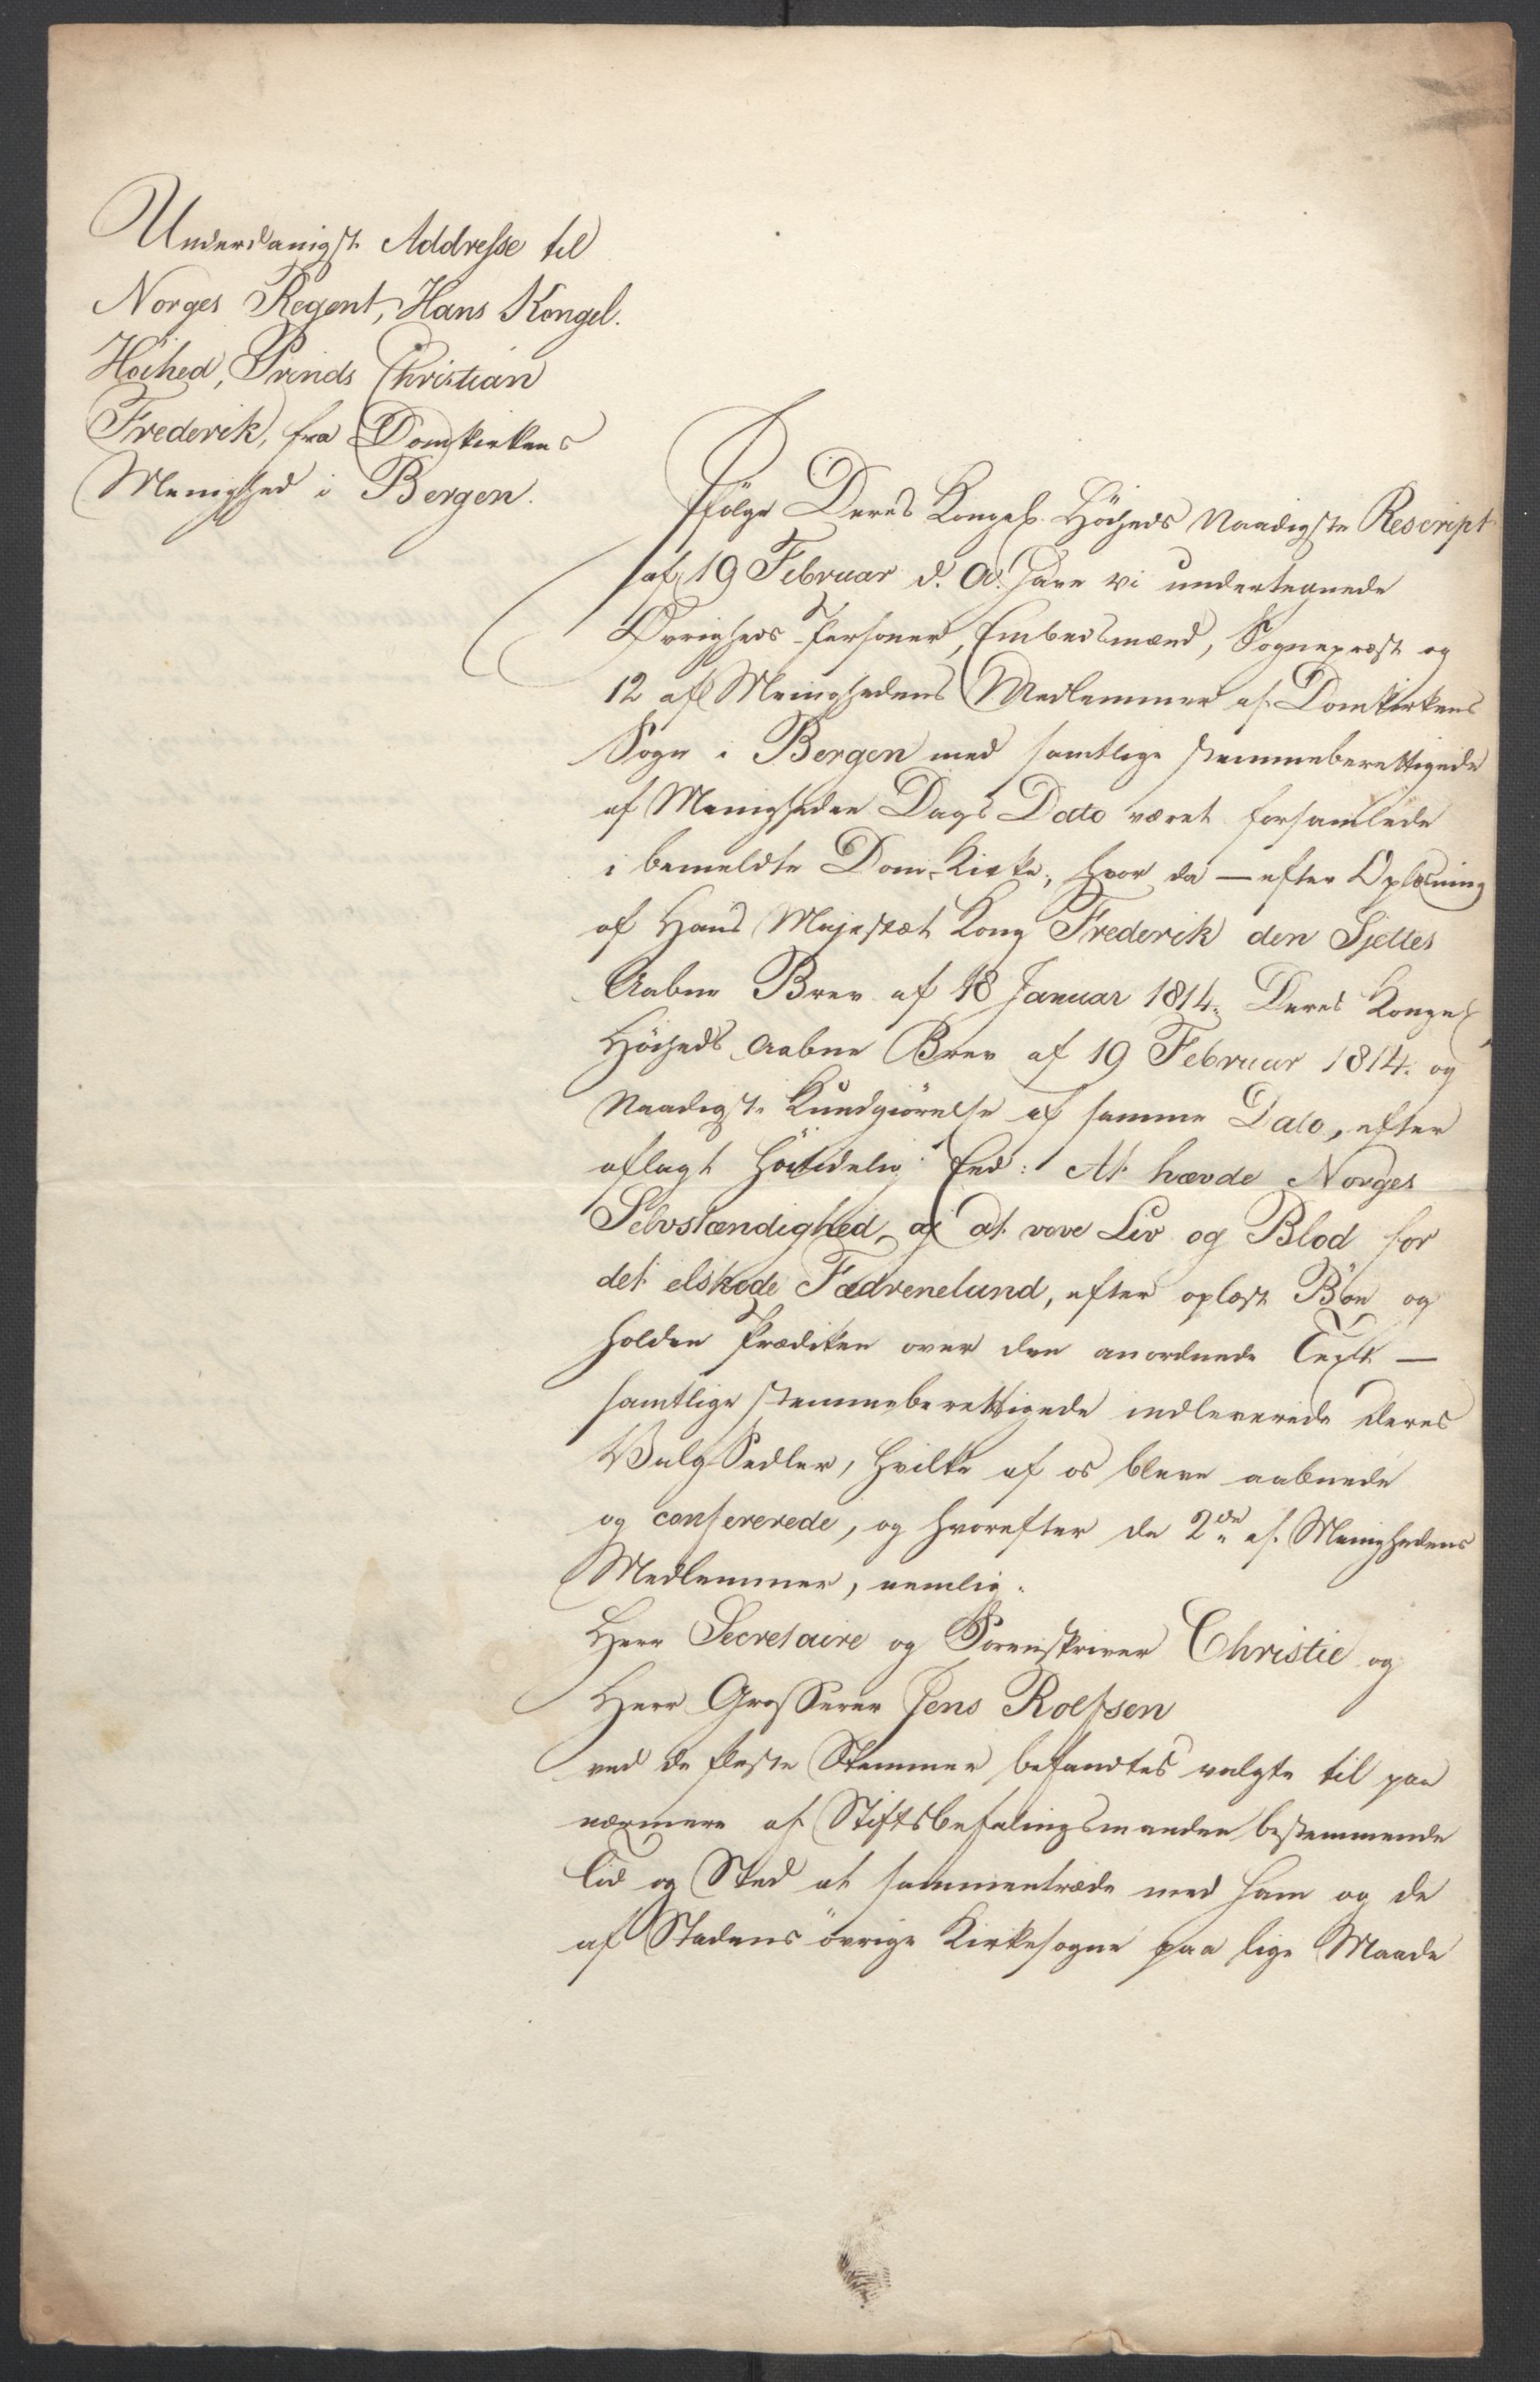 Underdanigst Addresse til
Norges Regent, Hans Kongel.
Høihed, Prinds Christian
Frederik, fra Domkirkens
Menighed i Bergen.
Ifølge Deres Kongel. Höiheds Naadigste Rescript
af 19 Februar d. A. have vi undertegnede
Øvrigheds-Personer, Embedsmænd, Sognepræst og
12 af Menighedens Medlemmer af Domkirkens
Sogn i Bergen med samtlige stemmeberettigede
af Menigheden Dags Dato været forsamlede
i bemeldte Dom-Kirke, hvor da — efter Oplæsning
af Hans Majestæt Kong Frederik den Sjettes
Aabne Brev af 18 Januar 1814. Deres Kongel.
Höiheds Aabne Brev af 19 Februar 1814. og
Naadigste Kundgiörelse af samme Dato, efter
aflagt höitidelig Eed: At hævde Norges
Selvstændighed, og at vove Liv og Blod for
det elskede Fædrenelund, efter oplæst Bön og
holden Prædiken over den anordnede Text —
samtlige stemmeberettigede indleverede deres
Valg Sedler, hvilke af os bleve aabnede
og confererede, og hvorefter de 2de af Menighedens
Medlemmer, nemlig.
Herr Secretaire og Sorenskriver Christie og
Herr Grosserer Jens Rolfsen
ved de fleste Stemmer befandtes valgte til paa
nærmere af Stiftsbefalingsmanden bestemmende
Tid og Sted at sammentræde med ham og de
af Stadens övrige Kirkesogne paa lige Maade